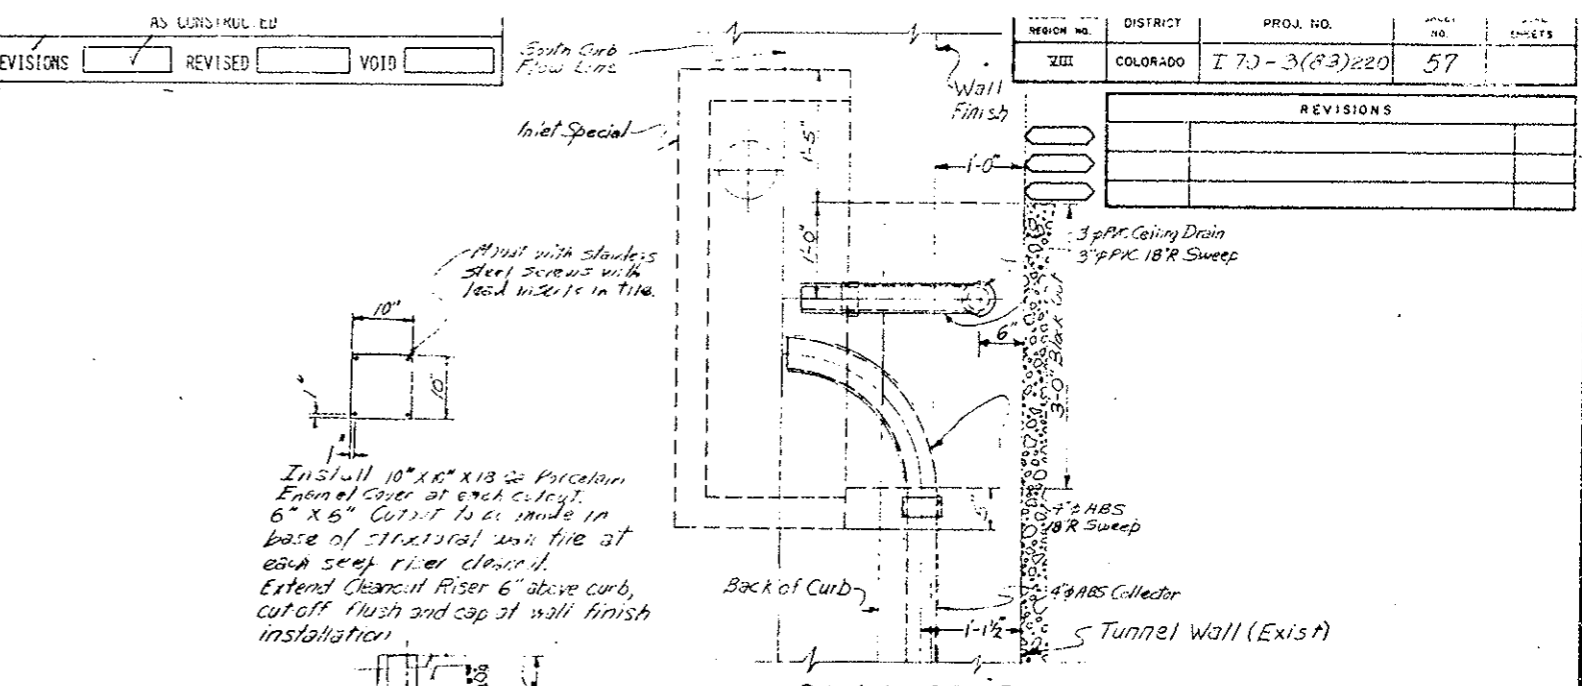 AS CONSTRUCTED
REVISIONS
REVISED
VOID
REGION NO.
DISTRICT
PROJ. NO.
SHEET NO.
SHEETS
VIII
COLORADO
I 70-3(83)220
57
REVISIONS
South Curb
Flow Line
Wall
Finish
Inlet Special
1'-5"
1'-0"
1'-0"
3"φ PVC Ceiling Drain
3"φ PVC 18"R Sweep
Mount with stainless
steel screws with
lead inserts in tile.
10"
10"
1"
1"
6"
3'-0" Block Out
Install 10" X 10" X 18 Ga Porcelain
Enamel Cover at each cutout.
6" X 6" Cutout to be made in
base of structural wall tile at
each seep riser cleanout.
Extend Cleanout Riser 6" above curb,
cut off flush and cap at wall finish
installation
4"φ ABS
18"R Sweep
Back of Curb
4"φ ABS Collector
1'-1½"
Tunnel Wall (Exist)